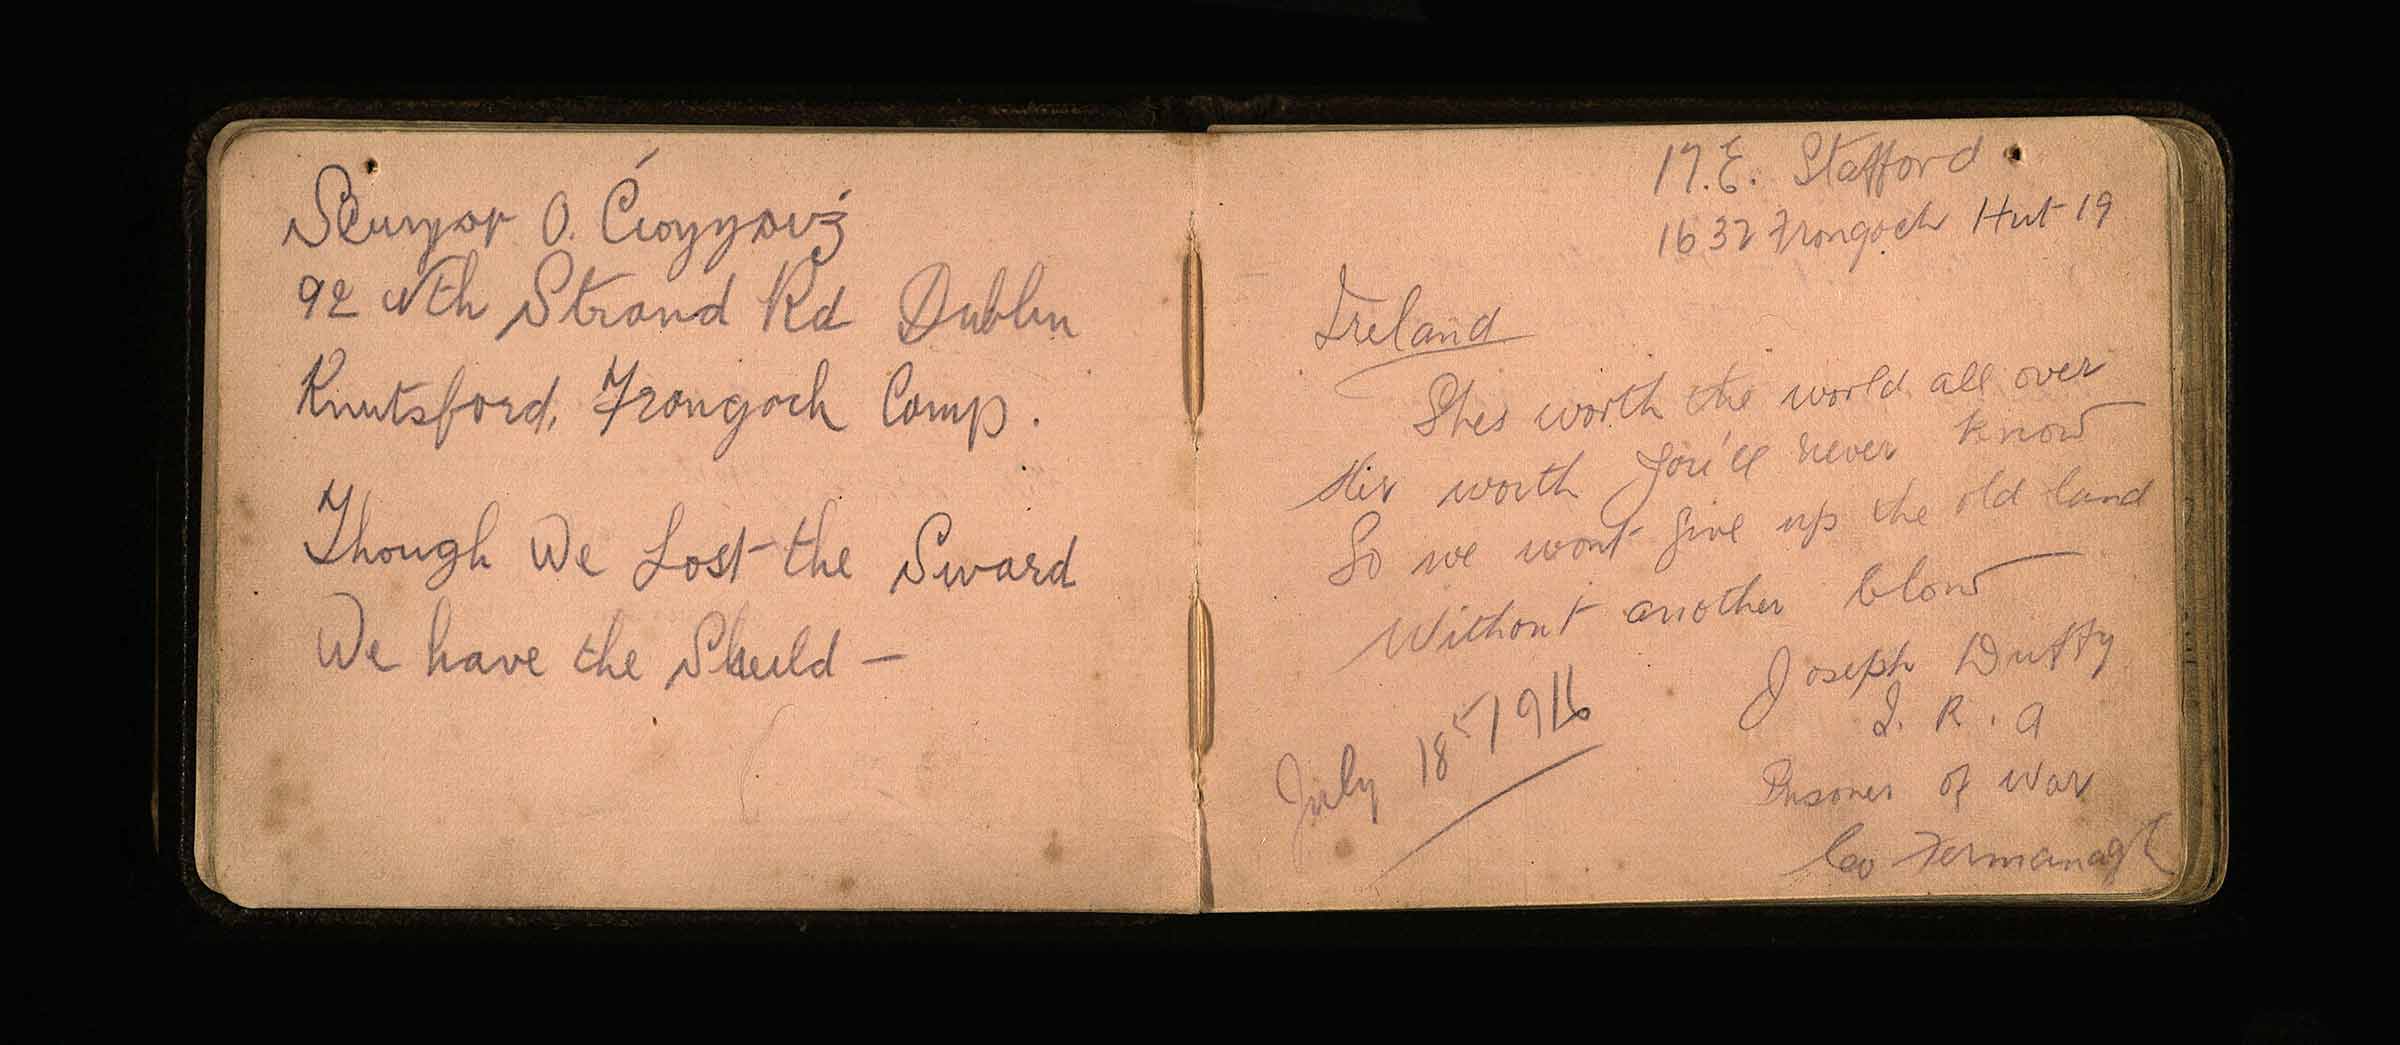 O.
92 Nth Strand Rd Dublin
Knutsford, Frongoch Camp.
Though We Lost the Sword
We have the Sheild —
17. E. Stafford
1632 Frongoch Hut 19
Ireland
Shes worth the world all over
Her worth you'll never know
So we wont give up the old land
Without another blow
Joseph Duffy
I. R. A
July 18th 1916
Prisoner of War
Co Fermanagh